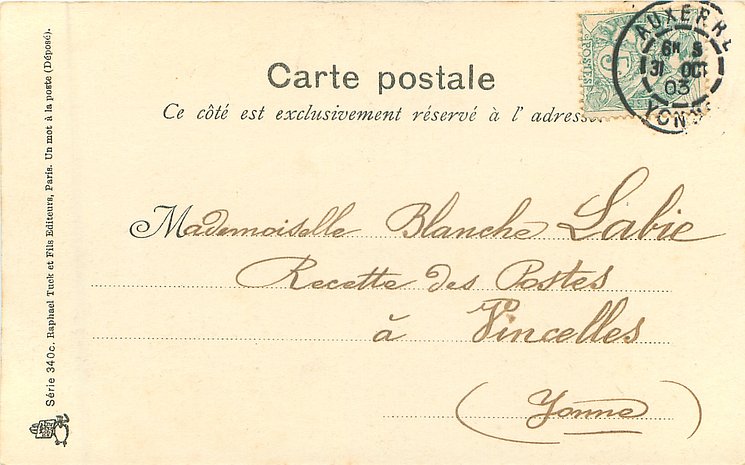 Carte postale
Ce côté est exclusivement réservé à l' adresse.
Mademoiselle Blanche Labie
Recette des Postes
à Vincelles
(Yonne)
Série 340c. Raphael Tuck et Fils Editeurs, Paris. Un mot à la poste (Déposé).
AUXERRE
31 OCT
03
YONNE
POSTES